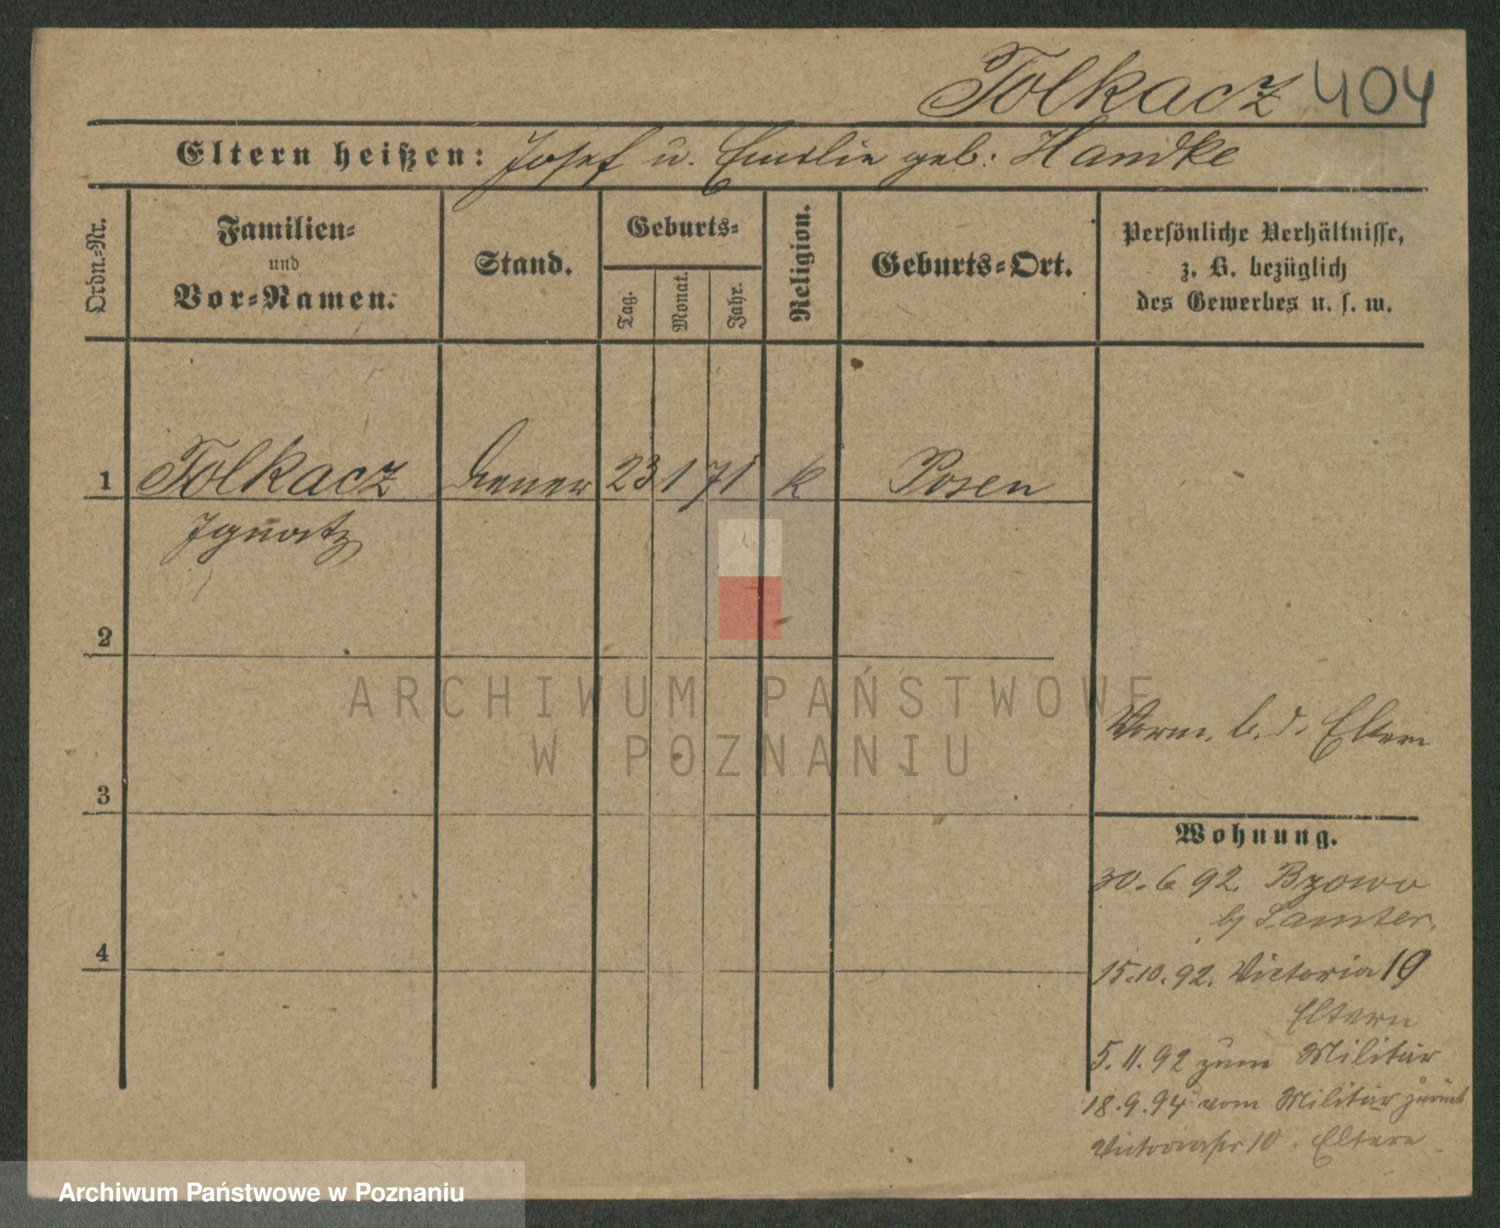 Tolkacz 404
Eltern heißen: Josef u. Emilie geb: Handke
Ordn.-Nr.
Familien-
und
Vor-Namen.
Stand.
Geburts-
Tag.
Monat.
Jahr.
Religion.
Geburts-Ort.
Persönliche Verhältnisse,
z. B. bezüglich
des Gewerbes u. s. w.
1 Tolkacz 23 1 71 k Posen
Ignatz
2
ARCHIWUM PAŃSTWOWE
W POZNANIU
Vorm. b. d. Eltern
3
Wohnung.
30. 6 92. Bzowo
b/ Samter.
4
15.10.92. Victoria 19
Eltern
5.11.92 zum Militär
18.9.94 vom Militär zurück
Victoriastr 10. Eltern
Archiwum Państwowe w Poznaniu